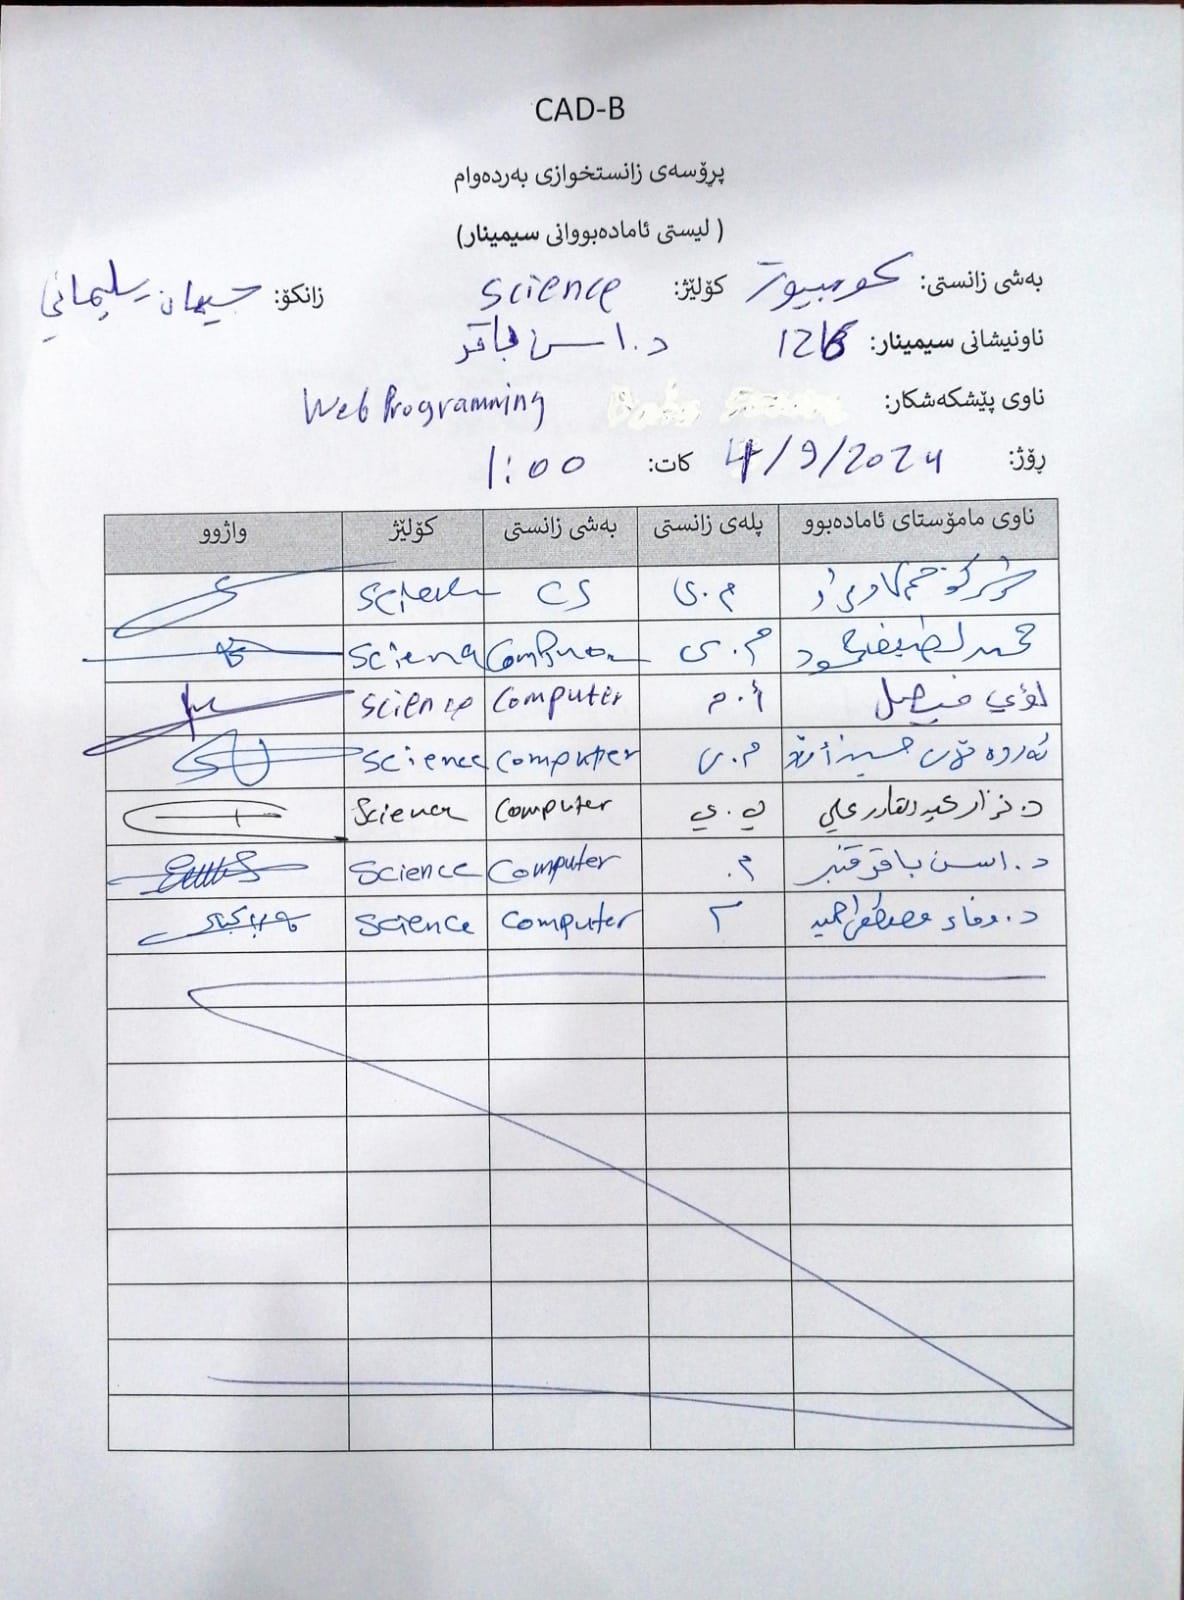 CAD-B
پڕۆسەی زانستخوازی بەردەوام
( لیستی ئامادەبووانی سیمینار)
بەشی زانستی: كومبيوتر کۆلێژ: Science زانکۆ: سليماني
ناونیشانی سیمینار: د. اسن باقر
ناوی پێشکەشکار: Web Programming
ڕۆژ: 4/9/2024 کات: 1:00
ناوی مامۆستای ئامادەبوو پلەی زانستی بەشی زانستی کۆلێژ واژوو
م.ى CS Science
محمد لطيف محمود م.ى Science
لؤي فيصل أ.م Computer Science
م.ى Computer Science
د. نزار عبدالقادر علي پ.ي Computer Science
د. اسن باقر قنبر م. Computer Science
د. وفاء مصطفى حميد م Computer Science